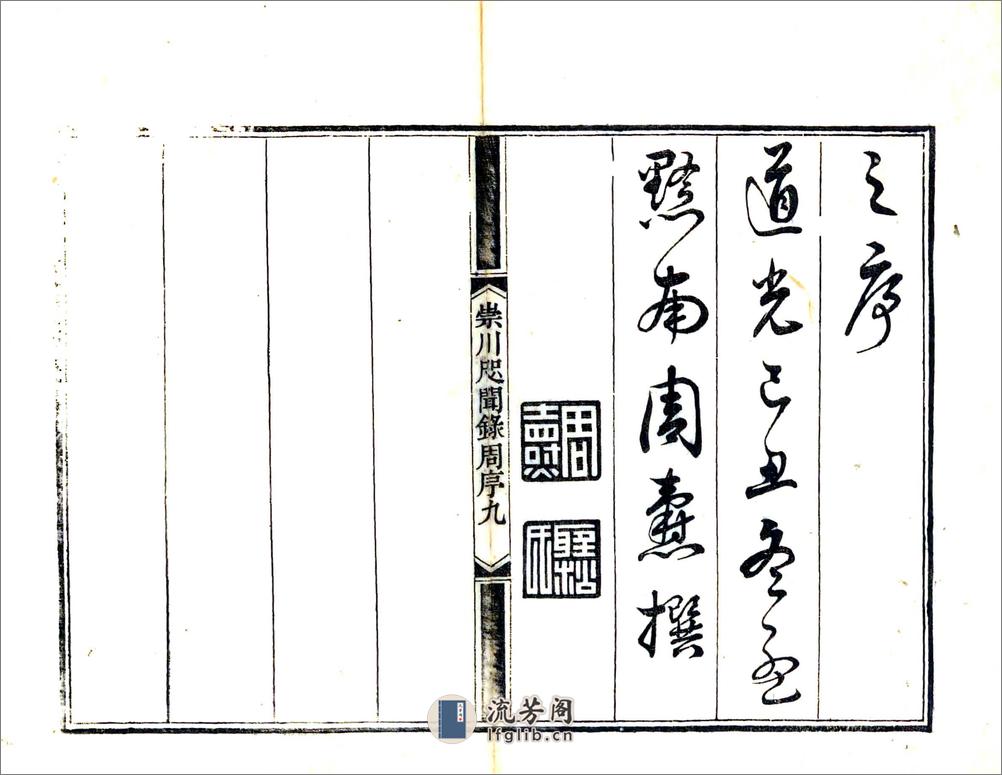 之序
道光己丑冬至
黔南周燾撰
周燾
崇川咫聞錄周序九
流芳阁
lfglib.cn